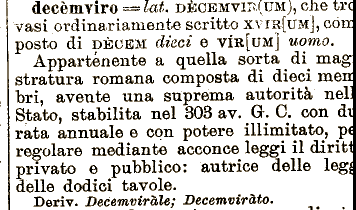 decèmviro = lat. DÈCEMVIR(UM), che tro
vasi ordinariamente scritto XVIR[UM], com
posto di DÈCEM dieci e VÍR[UM] uomo.
Appartenente a quella sorta di mag
stratura romana composta di dieci mem
bri, avente una suprema autorità nell
Stato, stabilita nel 303 av. G. C. con du
rata annuale e con potere illimitato, pe
regolare mediante acconce leggi il diritt
privato e pubblico: autrice delle legg
delle dodici tavole.
Deriv. Decemviràle; Decemviràto.